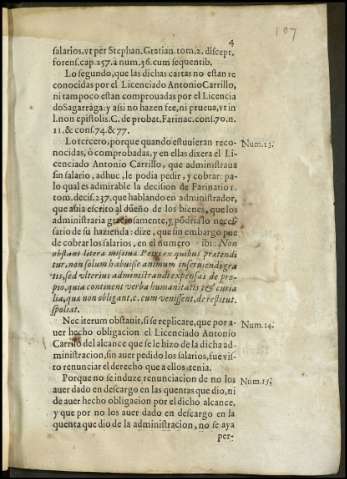 107
4
salarios, vt per Stephan. Gratian. tom. 2. discept.
forens. cap. 257. à num. 36. cum sequentib.
Lo segundo, que las dichas cartas no estan re
conocidas por el Licenciado Antonio Carrillo,
ni tampoco estan comprouadas por el Licencia
do Sagarraga: y assi no hazen fee, ni prueua, vt in
l. non epistolis. C. de probat. Farinac. conf. 70. n.
11. & conf. 74. & 77.
Lo tercero, porque quando estuuieran reco-
nocidas, ò comprobadas, y en ellas dixera el Li-
cenciado Antonio Carrillo, que administraua
sin salario, adhuc, le podia pedir, y cobrar: pa-
ra lo qual es admirable la decision de Farinacio 1.
tom. decis. 237. que hablando en administrador,
que auia escrito al dueño de los bienes, que los
administraria graciosamente, y pondria lo neces-
sario de su hazienda: dize, que sin embargo pue
de cobrar los salarios, en el numero ibi: Non
obstant litera ex quibus pretendi
tur, non solum habuisse animum inseruiendi gra
tis, sed vlterius administrandi expensis de pro-
pio, quia continent verba humanitatis & curia
lia, qua non obligant, c. cum venissent, de restitut.
spoliat.
Nec iterum obstauit, si se replicare, que por a-
uer hecho obligacion el Licenciado Antonio
Carrillo del alcance que se le hizo de la dicha ad-
ministracion, sin auer pedido los salarios, fue vis-
to renunciar el derecho que a ellos tenia.
Porque no se induze renunciacion de no los
auer dado en descargo en las quentas que dio, ni
de auer hecho obligacion por el dicho alcance,
y que por no los auer dado en descargo en la
quenta que dio de la administracion, no se aya
per-
Num. 13.
Num. 14.
Num. 15.